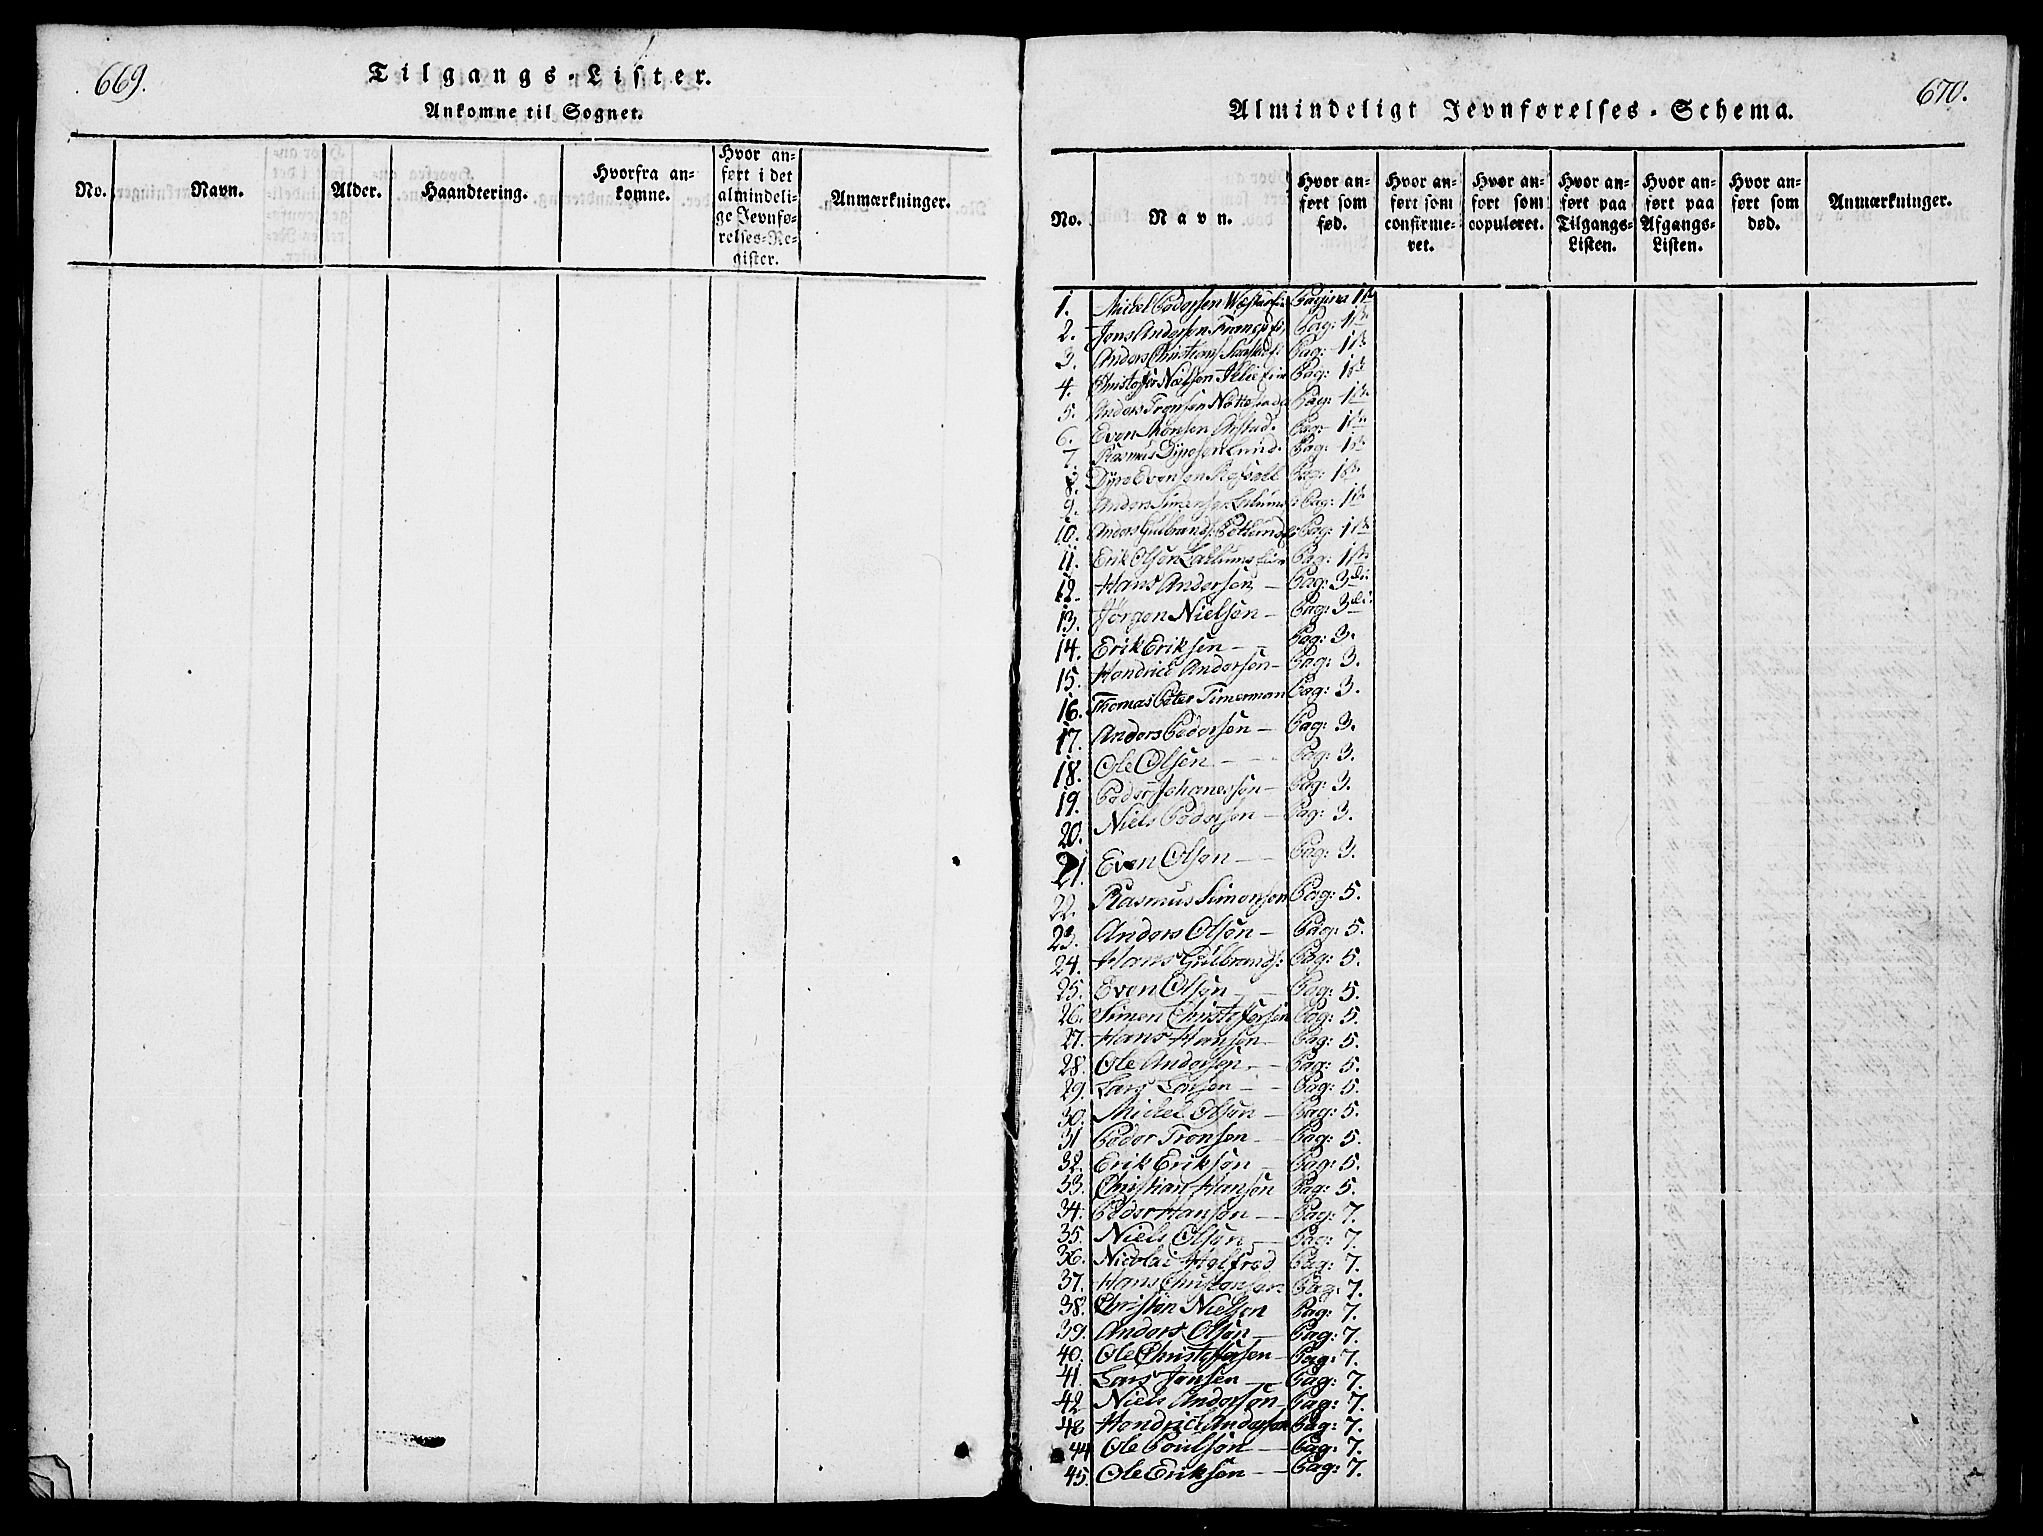 669.
Tilgangs-Lister.
Ankomne til Sognet.
No. Navn. Alder. Haandtering. Hvorfra ankomne. Hvor anført i det almindelige Jevnførelses-Register. Anmærkninger.
670.
Almindeligt Jevnførelses-Schema.
No. Navn. Hvor anført som fød. Hvor anført som confirmeret. Hvor anført som copuleret. Hvor anført paa Tilgangs-Listen. Hvor anført paa Afgangs-Listen. Hvor anført som død. Anmærkninger.
1. Mickel Pedersen Pagina 1
2. Jens Andersen Pag: 1
3. Anders Pag: 1
4. Christoffer Nielsen Pag: 1
5. Anders Tronsen Pag: 1
6. Even Pag: 1
7. Rasmus Lund. Pag: 1
8. Evensen Pag: 1
9. Anders Simensen Pag: 1
10. Anders Gulbrands: Pag: 1
11. Erik Olsen Pag: 1
12. Hans Andersen — Pag: 3
13. Jørgen Nielsen — Pag: 3
14. Erik Eriksen — Pag: 3.
15. Hendrick Andersen — Pag: 3.
16. Thomas Peter Timerman Pag: 3.
17. Anders Pedersen — Pag: 3.
18. Ole Olsen — Pag: 3.
19. Peder Johanessen — Pag: 3.
20. Niels Pedersen — Pag: 3.
21. Even Olsen — Pag: 3.
22. Rasmus Simensen Pag: 5.
23. Anders Olsen — Pag: 5.
24. Hans Gulbrands: Pag: 5.
25. Even Olsen — Pag: 5.
26. Simen Christofersen Pag: 5.
27. Hans Hansen — Pag: 5.
28. Ole Andersen — Pag: 5.
29. Lars Larsen — Pag: 5.
30. Mickel Olsen — Pag: 5.
31 Peder Tronsen — Pag: 5.
32. Erik Eriksen — Pag: 5.
33. Christian Hansen Pag: 5.
34. Peder Hansen — Pag: 7.
35. Niels Olsen — Pag: 7.
36. Nicolai Helfred Pag: 7.
37. Hans Christensen Pag: 7.
38. Christen Nielsen Pag: 7.
39. Anders Olsen — Pag: 7.
40. Ole Christofersen — Pag: 7.
41. Lars Jensen — Pag: 7.
42 Niels Andersen — Pag: 7.
43 Hendrick Andersen Pag: 7.
44 Ole Poulsen — Pag: 7.
45. Ole Eriksen — Pag: 7.